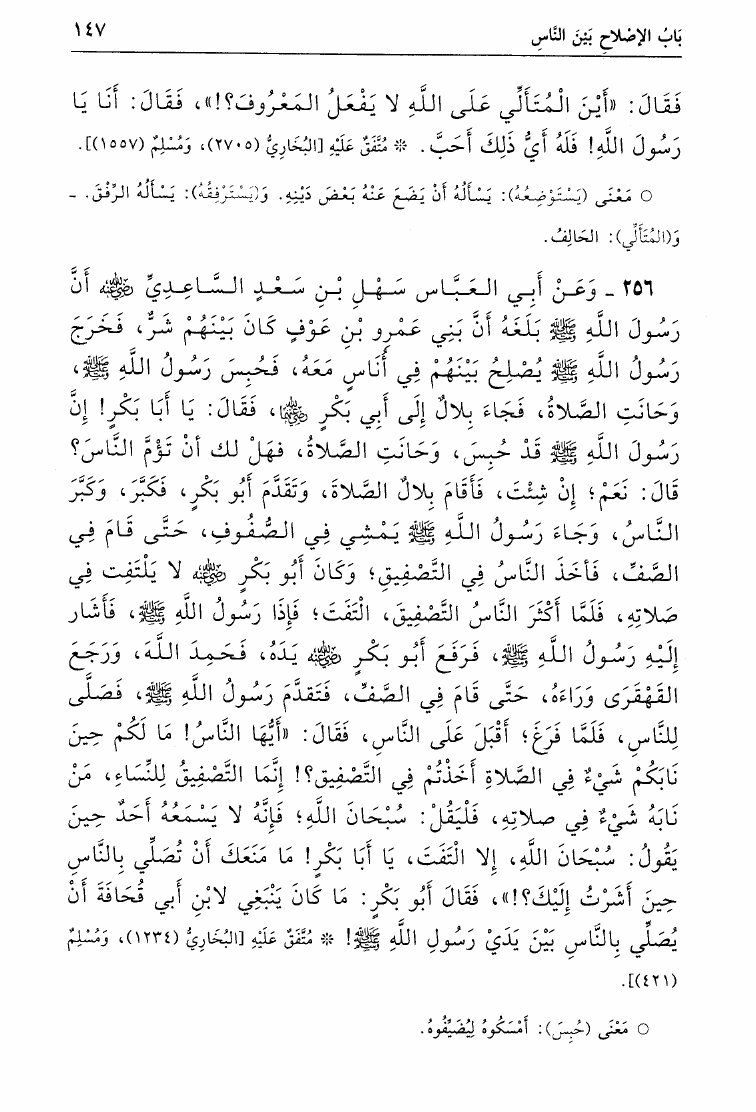 بَابُ الإِصْلاحِ بَيْنَ النَّاسِ ١٤٧
فَقَالَ: «أَيْنَ الْمُتَأَلِّي عَلَى اللَّهِ لا يَفْعَلُ المَعْرُوفَ؟!»، فَقَالَ: أَنَا يَا
رَسُولَ اللَّهِ! فَلَهُ أَيُّ ذَلِكَ أَحَبَّ. * مُتَّفَقٌ عَلَيْهِ [البُخَارِيُّ (٢٧٠٥)، وَمُسْلِمٌ (١٥٥٧)].
○ مَعْنَى (يَسْتَوْضِعُهُ): يَسْأَلُهُ أَنْ يَضَعَ عَنْهُ بَعْضَ دَيْنِهِ. وَ(يَسْتَرْفِقُهُ): يَسْأَلُهُ الرِّفْقَ. ـ
وَ(المُتَأَلِّي): الحَالِفُ.
٢٥٦ ـ وَعَنْ أَبِي العَبَّاسِ سَهْلِ بْنِ سَعْدٍ السَّاعِدِيِّ رضي الله عنه أَنَّ
رَسُولَ اللَّهِ ﷺ بَلَغَهُ أَنَّ بَنِي عَمْرِو بْنِ عَوْفٍ كَانَ بَيْنَهُمْ شَرٌّ، فَخَرَجَ
رَسُولُ اللَّهِ ﷺ يُصْلِحُ بَيْنَهُمْ فِي أُنَاسٍ مَعَهُ، فَحُبِسَ رَسُولُ اللَّهِ ﷺ،
وَحَانَتِ الصَّلاةُ، فَجَاءَ بِلالٌ إِلَى أَبِي بَكْرٍ رضي الله عنهما، فَقَالَ: يَا أَبَا بَكْرٍ! إِنَّ
رَسُولَ اللَّهِ ﷺ قَدْ حُبِسَ، وَحَانَتِ الصَّلاةُ، فَهَلْ لك أَنْ تَؤُمَّ النَّاسَ؟
قَالَ: نَعَمْ؛ إِنْ شِئْتَ، فَأَقَامَ بِلالٌ الصَّلاةَ، وَتَقَدَّمَ أَبُو بَكْرٍ، فَكَبَّرَ، وَكَبَّرَ
النَّاسُ، وَجَاءَ رَسُولُ اللَّهِ ﷺ يَمْشِي فِي الصُّفُوفِ، حَتَّى قَامَ فِي
الصَّفِّ، فَأَخَذَ النَّاسُ فِي التَّصْفِيقِ؛ وَكَانَ أَبُو بَكْرٍ رضي الله عنه لا يَلْتَفِت فِي
صَلاتِهِ، فَلَمَّا أَكْثَرَ النَّاسُ التَّصْفِيقَ، الْتَفَتَ؛ فَإِذَا رَسُولُ اللَّهِ ﷺ، فَأَشَار
إِلَيْهِ رَسُولُ اللَّهِ ﷺ، فَرَفَعَ أَبُو بَكْرٍ رضي الله عنه يَدَهُ، فَحَمِدَ اللَّهَ، وَرَجَعَ
القَهْقَرَى وَرَاءَهُ، حَتَّى قَامَ فِي الصَّفِّ، فَتَقدَّمَ رَسُولُ اللَّهِ ﷺ، فَصَلَّى
لِلنَّاسِ، فَلَمَّا فَرَغَ؛ أَقْبَلَ عَلَى النَّاسِ، فَقَالَ: «أَيُّهَا النَّاسُ! مَا لَكُمْ حِينَ
نَابَكُمْ شَيْءٌ فِي الصَّلاةِ أَخَذْتُمْ فِي التَّصْفِيقِ؟! إِنَّمَا التَّصْفِيقُ لِلنِّسَاءِ، مَنْ
نَابَهُ شَيْءٌ فِي صلاتِهِ، فَلْيَقُلْ: سُبْحَانَ اللَّهِ؛ فَإِنَّهُ لا يَسْمَعُهُ أَحَدٌ حِينَ
يَقُولُ: سُبْحَانَ اللَّهِ، إِلا الْتَفَتَ، يَا أَبَا بَكْرٍ! مَا مَنَعَكَ أَنْ تُصَلِّيَ بِالنَّاسِ
حِينَ أَشَرْتُ إِلَيْكَ؟!»، فَقَالَ أَبُو بَكْرٍ: مَا كَانَ يَنْبَغِي لابْنِ أَبِي قُحَافَةَ أَنْ
يُصَلِّيَ بِالنَّاسِ بَيْنَ يَدَيْ رَسُولِ اللَّهِ ﷺ! * مُتَّفَقٌ عَلَيْهِ [البُخَارِيُّ (١٢٣٤)، وَمُسْلِمٌ
(٤٢١)].
○ مَعْنَى (حُبِسَ): أَمْسَكُوهُ لِيُضَيِّفُوهُ.